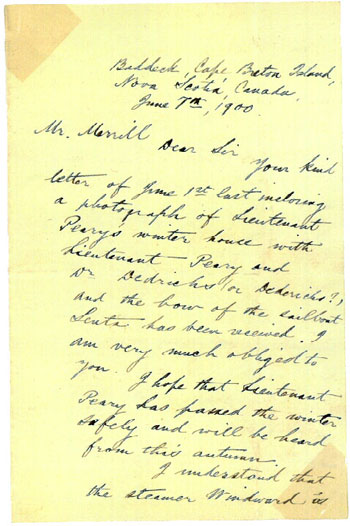 Baddeck, Cape Breton Island,
Nova Scotia, Canada,
June 7th, 1900.
Mr. Merrill
Dear Sir
Your kind
letter of June 1st last inclosing
a photograph of Lieutenant
Pearys winter house with
Lieutenant Peary and
Dr Dedrichs or Dederichs?,
and the bow of the sailboat
has been received. I
am very much obliged to
you.
I hope that Lieutenant
Peary has passed the winter
safely and will be heard
from this autumn.
I understand that
the steamer Windward is